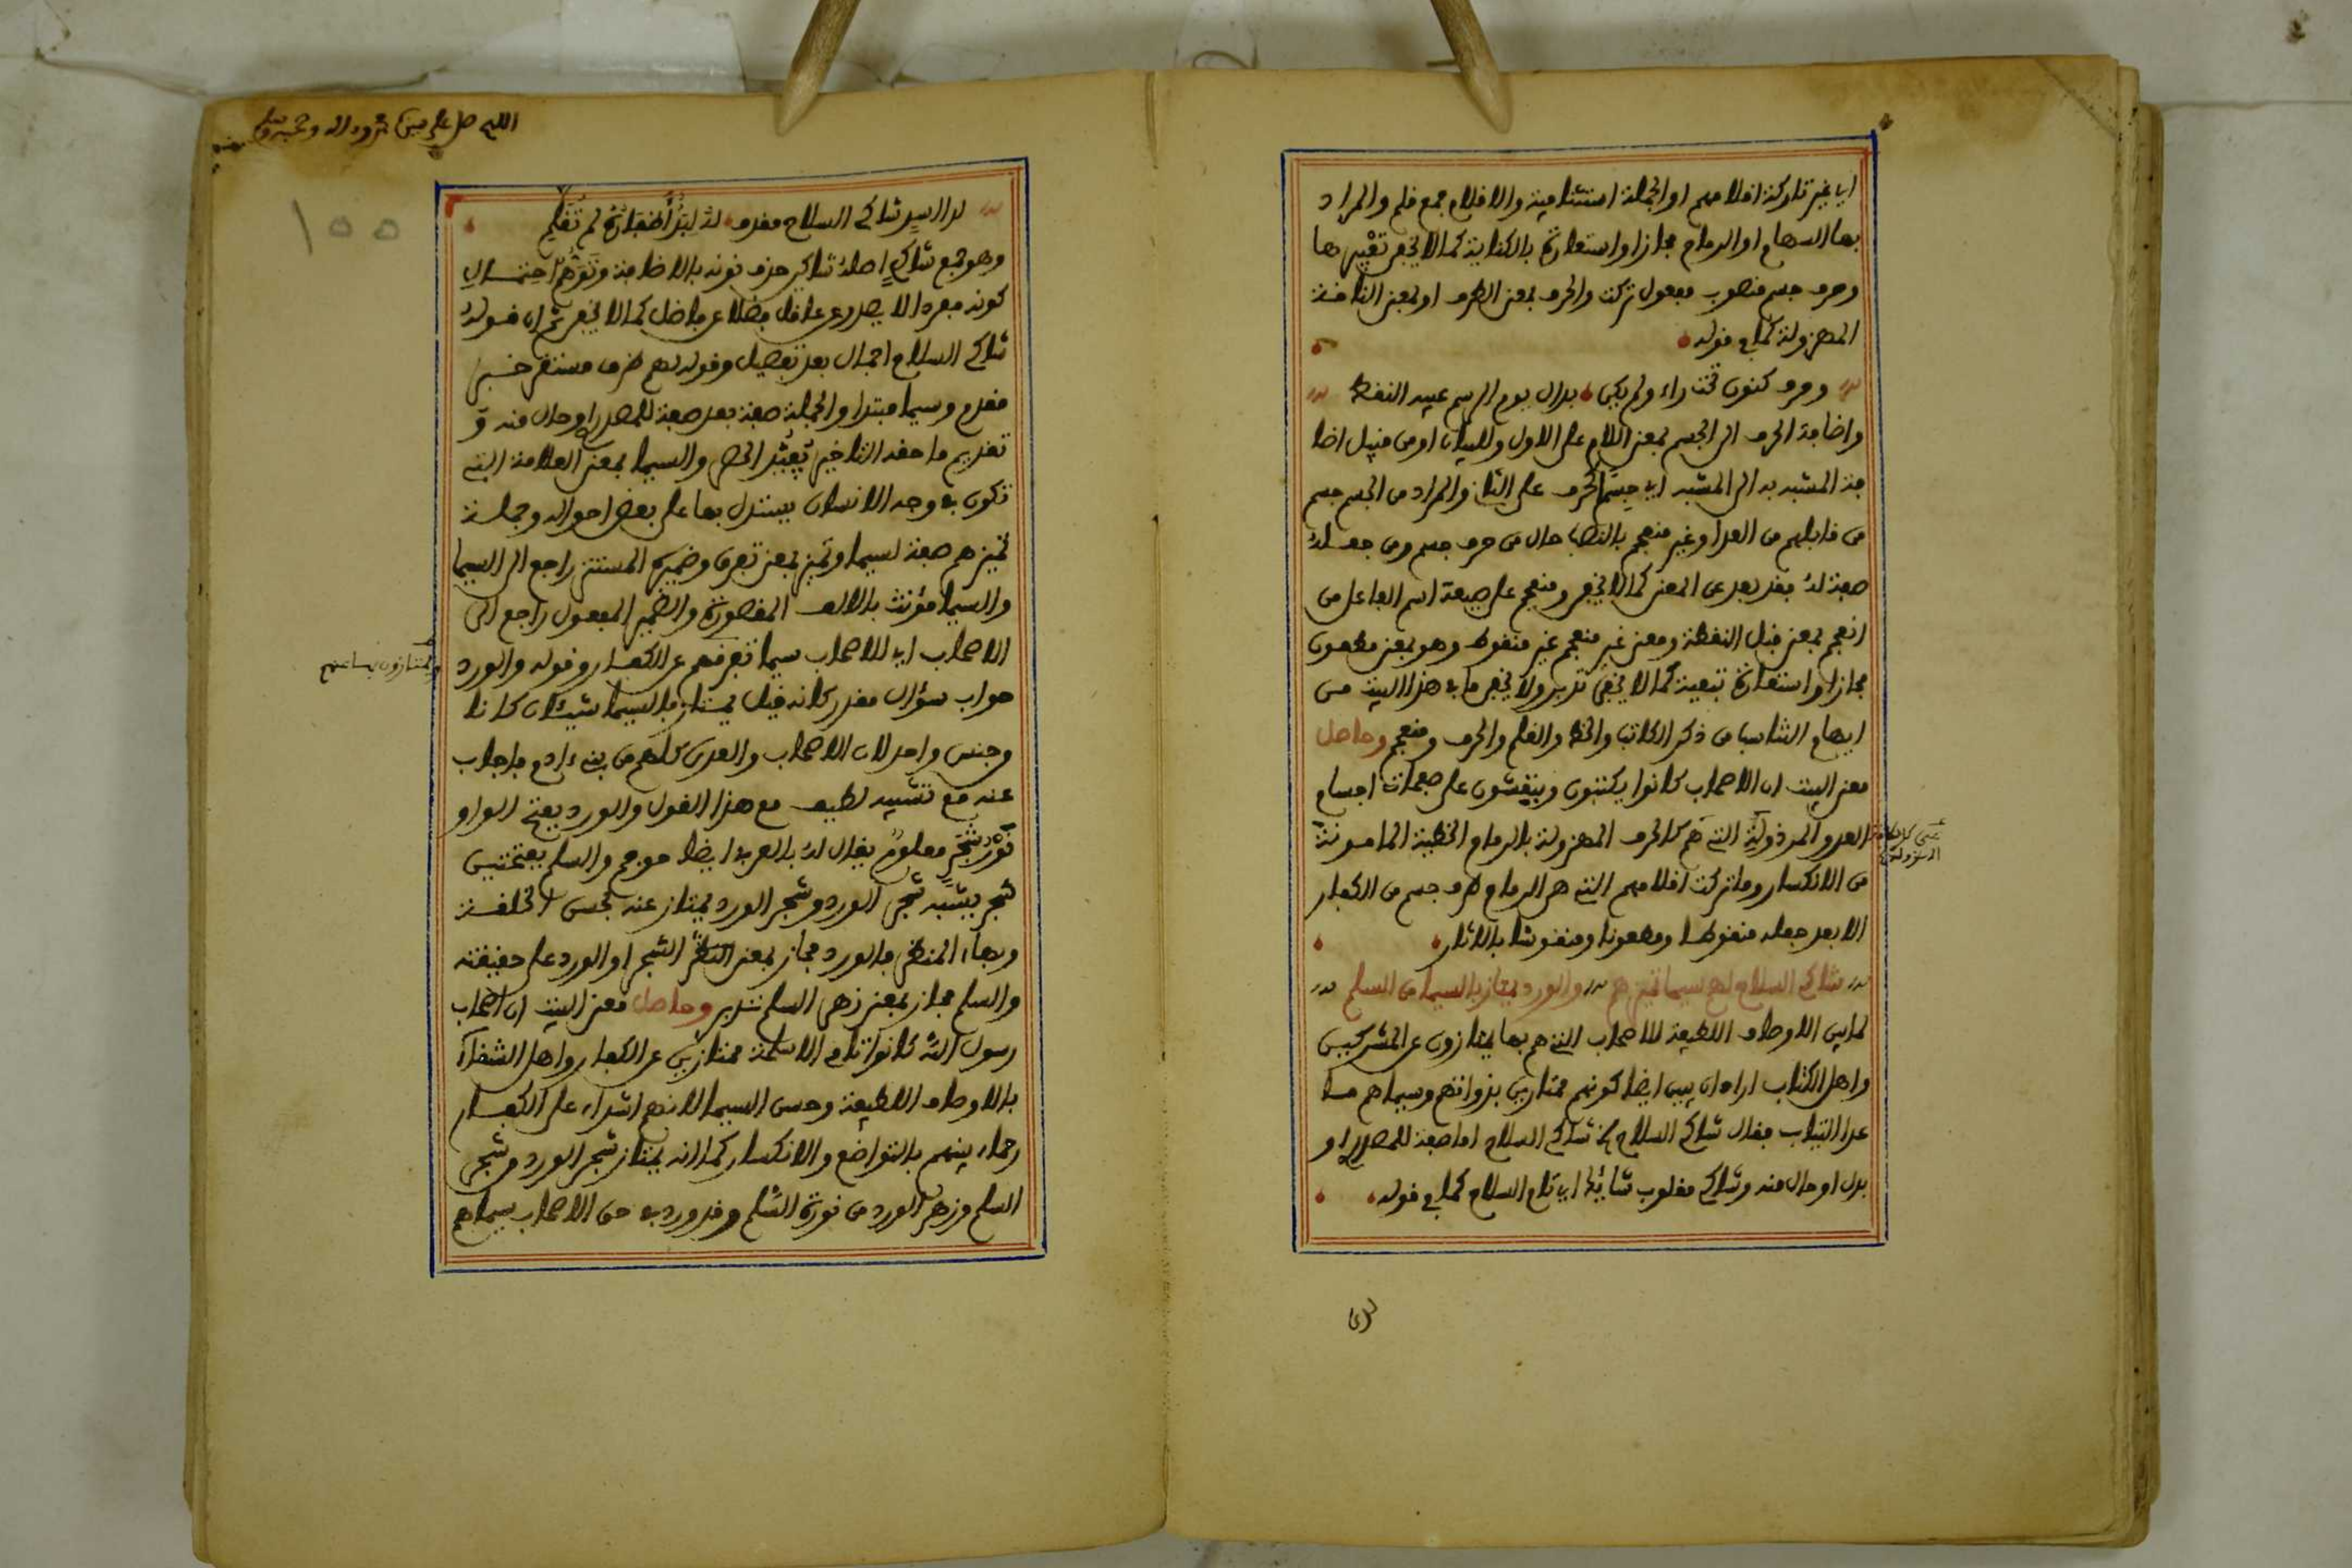 اي غير تاركة اقلامهم او الجملة استئنافية والاقلام جمع قلم والمراد
بها السهام او الرماح مجازا واستعارة بالكناية كما لا يخفى تعبيرها
وحرف جسم منصوب مفعول تركت والحرف بمعنى الطرف او بمعنى الناقة
المهزولة كما في قوله
وحرف كنون تحت راء ولم يكن بدال يوم الرسم غيره النقط
واضافة الحرف الى الجسم بمعنى اللام على الاول وللبيان او من قبيل اضا
فة المشبه به الى المشبه اي جسم كالحرف على الثاني والمراد من الجسم جسم
من قابلهم من العدا وغير منعجم بالنصب حال من حرف جسم ومن جعله
صفة له فقد بعد عن المعنى كما لا يخفى ومنعجم على صيغة اسم الفاعل من
انعجم بمعنى قبل النقطة ومعنى غير منعجم غير منقوط وهو بمعنى مطعون
مجازا واستعارة تبعية كما لا يخفى تدبر ولا يخفى ما في هذا البيت من
ايهام التناسب من ذكر الكاتب والخط والقلم والحرف ومنعجم وحاصل
معنى البيت ان الاصحاب كانوا يكتبون وينقشون على صفحات اجسام
العدو المرذولة التي هم كالحرف المهزولة بالرماح الخطية المامونة
من الانكسار وما تركت اقلامهم التي هي الرماح طرف جسم من الكفار
الا بعد جعله منقوطا ومطعونا ومنقوشا بالاثار
شاكي السلاح لهم سيما تميزهم والورد يمتاز بالسيما من السلم
لما بين الاوصاف اللطيفة للاصحاب التي هم بها يمتازون عن المشركين
واهل الكتاب اراد ان يبين ايضا كونهم ممتازين بذواتهم وسيماهم ما
عدا الثياب فقال شاكي السلاح الخ شاكي السلاح اما صفة للمصدر او
بدل او حال منه وشاكي مقلوب شائك اي تام السلاح كما في قوله
لدى
اللهم صل على سيدنا محمد واله وصحبه وسلم
100
لدا اسد شاكي السلاح مقذف له لبد اظفاره لم تقلم
وهو جمع شاك اصله شاكين حذف نونه بالاضافة وتوهم احتمال
كونه مفردا لا يصدر عن عاقل فضلا عن فاضل كما لا يخفى ثم ان قوله
شاكي السلاح اجمال بعد تفصيل وقوله لهم ظرف مستقر خبر
مقدم وسيما مبتدا والجملة صفة بعد صفة للمصدر او حال منه و
تقديم ما حقه التاخير يفيد الحصر والسيما بمعنى العلامة التي
تكون في وجه الانسان يستدل بها على بعض احواله وجملة
تميزهم صفة لسيما وتميز بمعنى تعرف وضميره المستتر راجع الى السيما
والسيما مؤنث بالالف المقصورة والضمير المفعول راجع الى
الاصحاب اي للاصحاب سيما تعرفهم عن الكفار وقوله والورد
جواب سؤال مقدر كانه قيل يمتاز بالسيما شيئان كانا
وجنس واحد لان الاصحاب والعدى كلهم من بني ءادم فاجاب
عنه مع تشبيه لطيف مع هذا القول والورد بفتح الواو
نور شجر معلوم يقال له بالعربية ايضا حوجم والسلم بفتحتين
شجر يشبه شجر الورد وشجر الورد يمتاز عنه بحسن الخلقة
وبهاء المنظر فالورد مجاز بمعنى الشجر او الورد على حقيقته
والسلم مجاز بمعنى زهر السلم تدبر وحاصل معنى البيت ان اصحاب
رسول الله كانوا تام الاسلحة ممتازين عن الكفار واهل الشقاء
بالاوصاف اللطيفة وحسن السيما لانهم اشداء على الكفار
رحماء بينهم بالتواضع والانكسار كما انه يمتاز شجر الورد من شجر
السلم وزهر الورد من نورة السلم وقد ورد في حق الاصحاب سيماهم